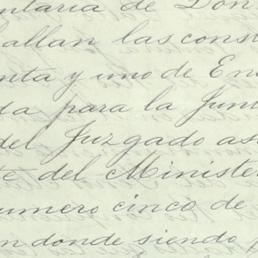 ntaria de Don
allan las const
enta y uno de En
da para la Junt
del Juzgado as
te del Minister
numero cinco de
n donde siendo